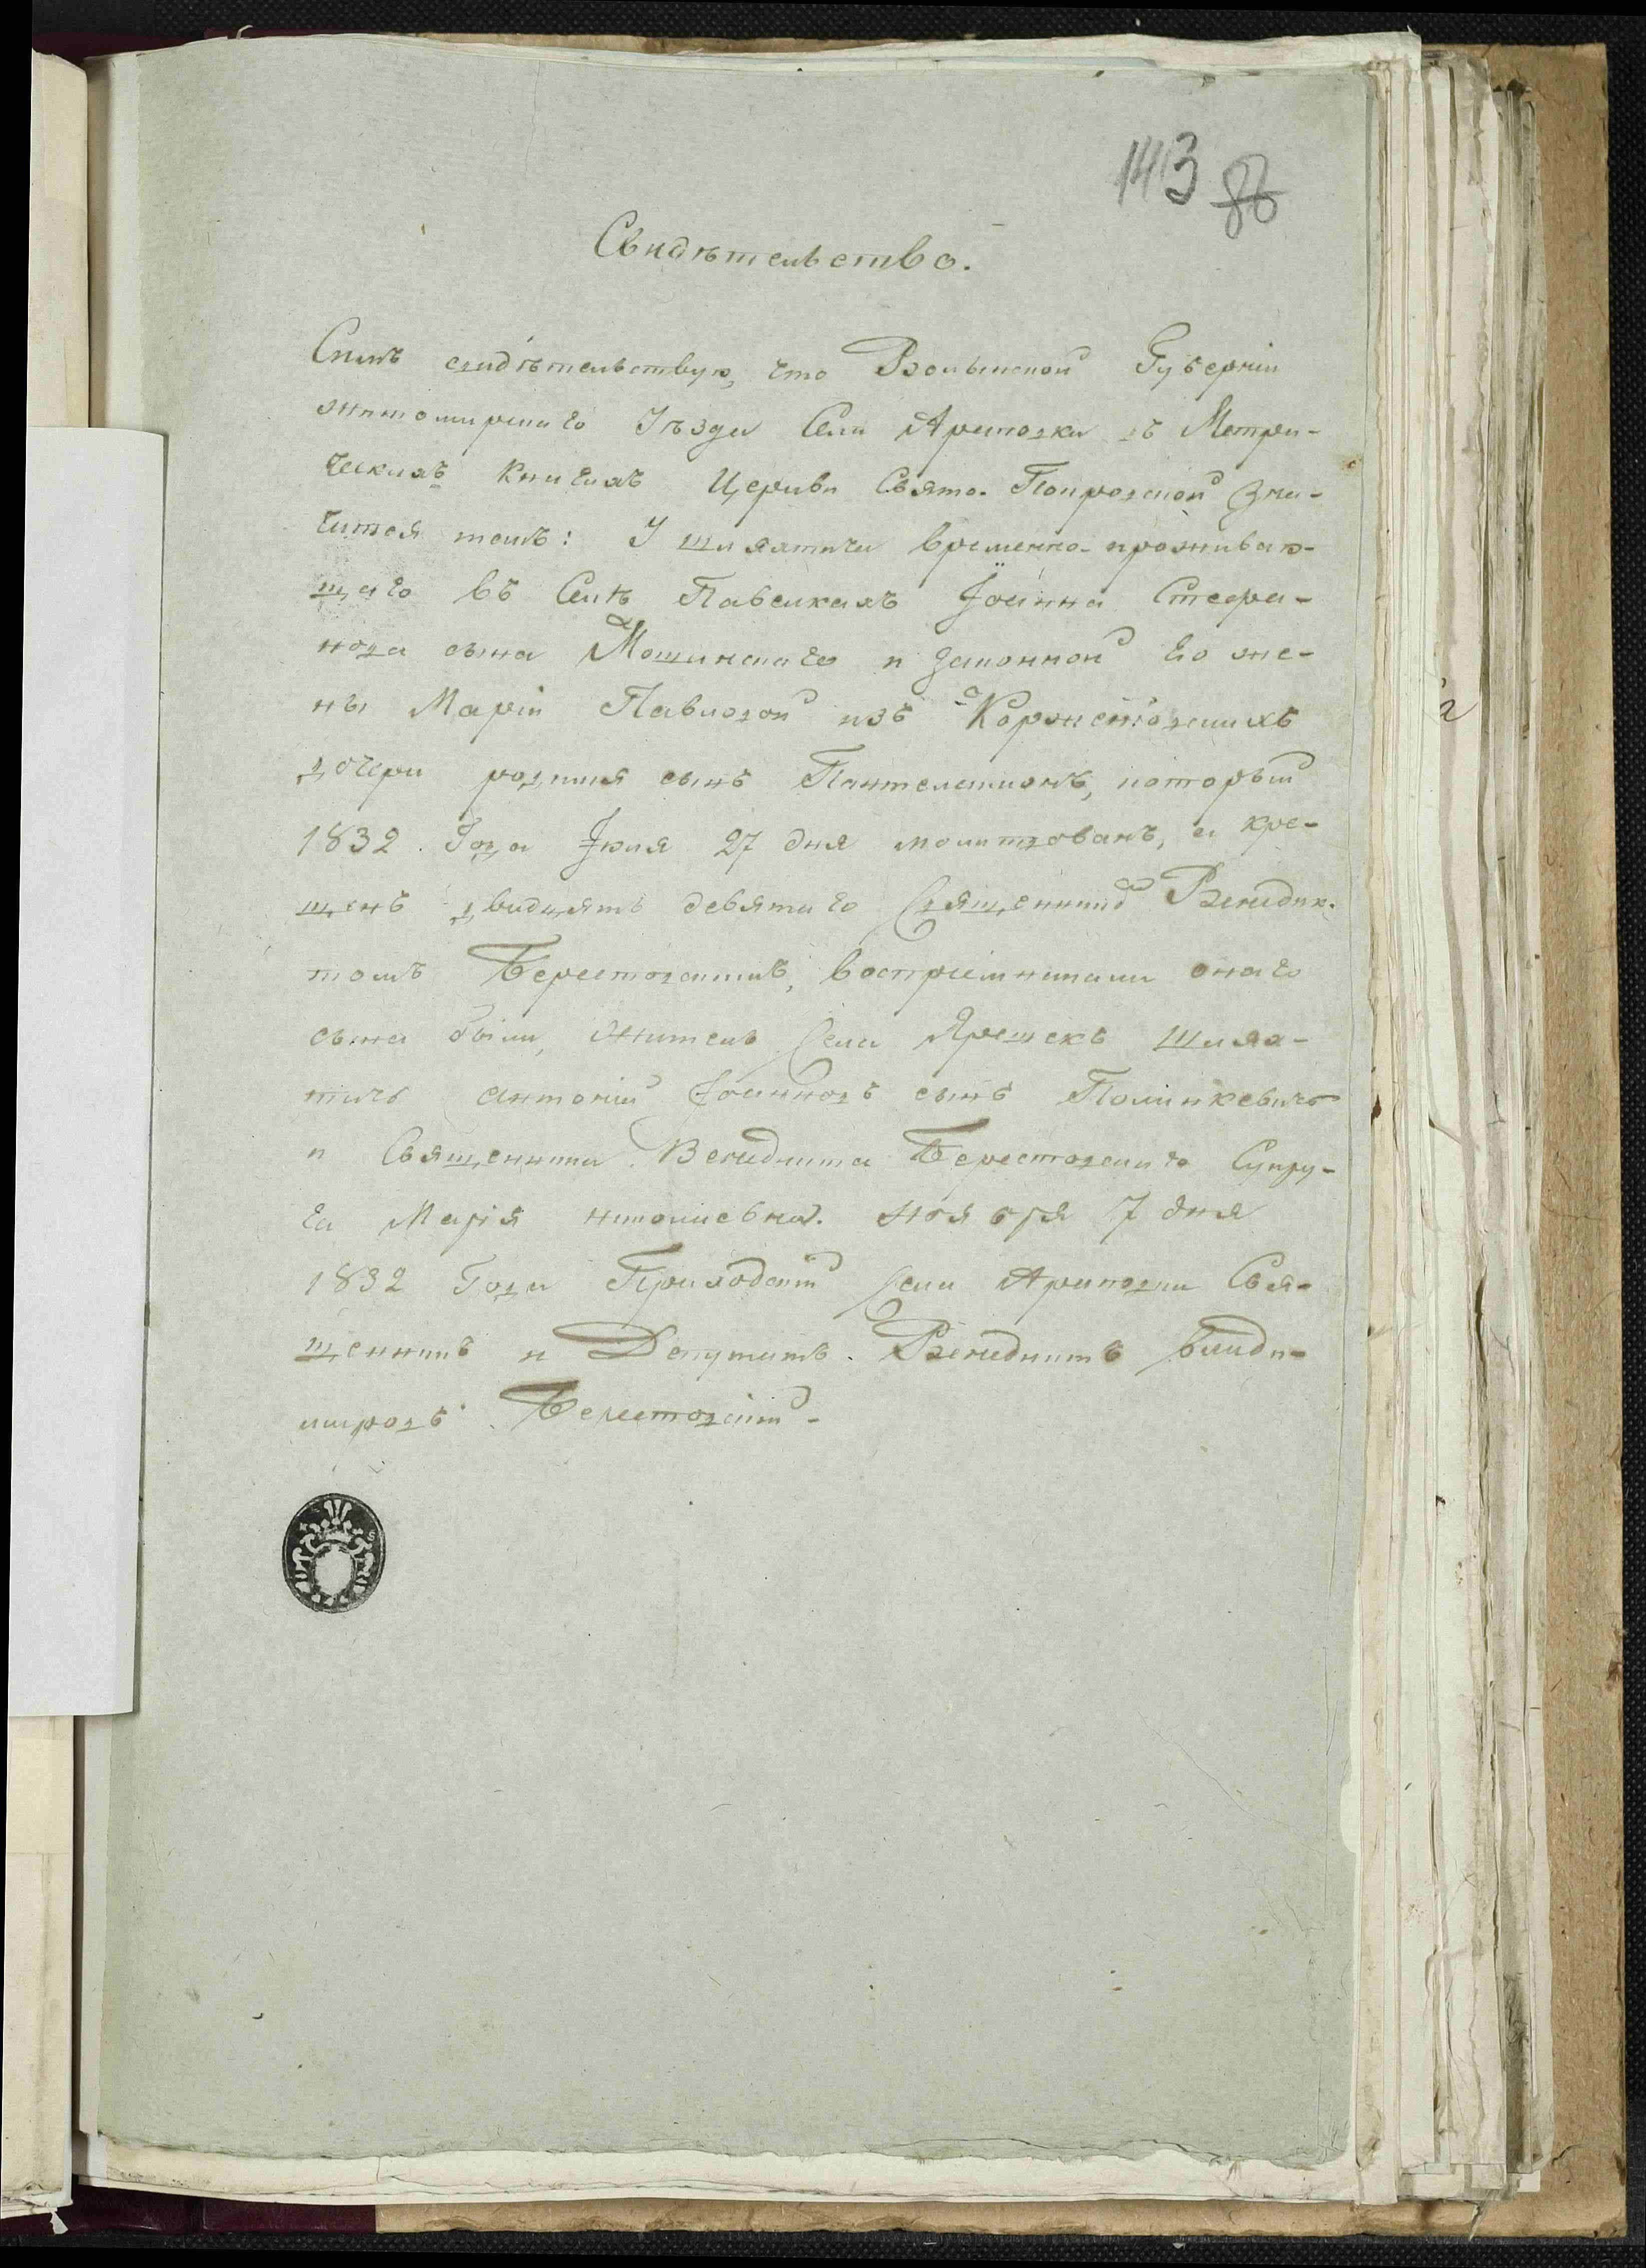 143 86
Свидѣтельство.
Симъ свидѣтельствую, что Волынской Губерніи
житомирскаго Уѣзда Села Ярыповки въ Метри-
ческихъ книгахъ Церкви Свято-Покровской зна-
чится такъ: У шляхтича временно-проживаю-
щаго въ Селѣ Павелкахъ Іоанна Стефа-
нова сына Мошинскаго и законной его же-
ны Маріи Павловой изъ Коржениовскихъ
дочери родился сынъ Пантелеимонъ, который
1832 Года Іюля 27 дня молитвованъ, а кре-
щенъ двадцять девятаго Священникомъ Венедик-
томъ Берестовскимъ, воспріемниками онаго
сына были, житель Села Ярешекъ шлях-
тичъ Антоній Іоанновъ сынъ Полинкевичъ
и Священника Венедикта Берестовскаго Супру-
га Марія Ноября 7 дня
1832 Года Приходскій Села Ярыповки Свя-
щенникъ и Депутатъ Венедиктъ Влади-
мировъ Берестовскій